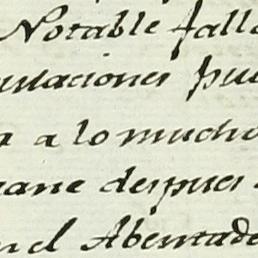 Notable fall
ulaciones pue
a a lo mucho
ane despues
n el Abentade